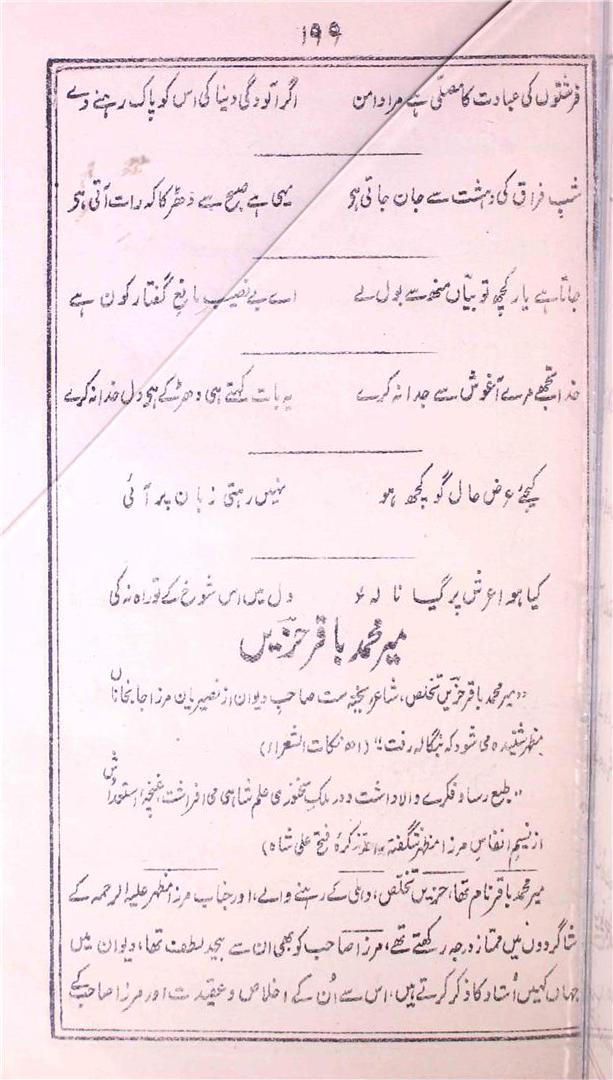 ۱۹۹
فرشتوں کی عبادت کا مصلّٰی ہے مرا دامن اگر آلودگی دنیا کی اس کو پاک رہنے دے
شب فراق کی دہشت سے جان جاتی ہی یہی ہے صبح سے دھڑکا کہ رات آتی ہی
جاتا ہے یار کچھ تو بیاں منھ سے بول لے اے بے نصیب مانع گفتار کون ہے
خدا تجھے مرے آغوش سے جدا نہ کرے یہ بات کہتے ہی دھڑکے ہی دل خدا نہ کرے
کیجئے عرض حال گو کچھ ہو نہیں رہتی زبان پر آئی
کیا ہوا عرش پر گیا نالہ دل میں اس شوخ کے تو راہ نہ کی
میر محمد باقر حزیں
"میر محمد باقر حزیں تخلص، شاعر ریختہ ست صاحب دیوان از نصیریان مرزا جانجاناں
مظہر شنیدہ می شود کہ بنگالہ رفت" (از نکات الشعراء)
"طبع رسا و فکرے والا داشت و در ملک سخنوری علم شاہی می افراشت، غنچہ استعدادش
از نسیم انفاس مرزا مظہر شگفتہ" (از تذکرۂ فتح علی شاہ)
میر محمد باقر نام تھا، حزیں تخلص، دہلی کے رہنے والے، اور جناب مرزا مظہر علیہ الرحمہ کے
شاگردوں میں ممتاز درجہ رکھتے تھے، مرزا صاحب کو بھی ان سے بیحد لطف تھا، دیوان میں
جہاں کہیں اُستاد کا ذکر کرتے ہیں، اس سے اُن کے اخلاص و عقیدت اور مرزا صاحب کے